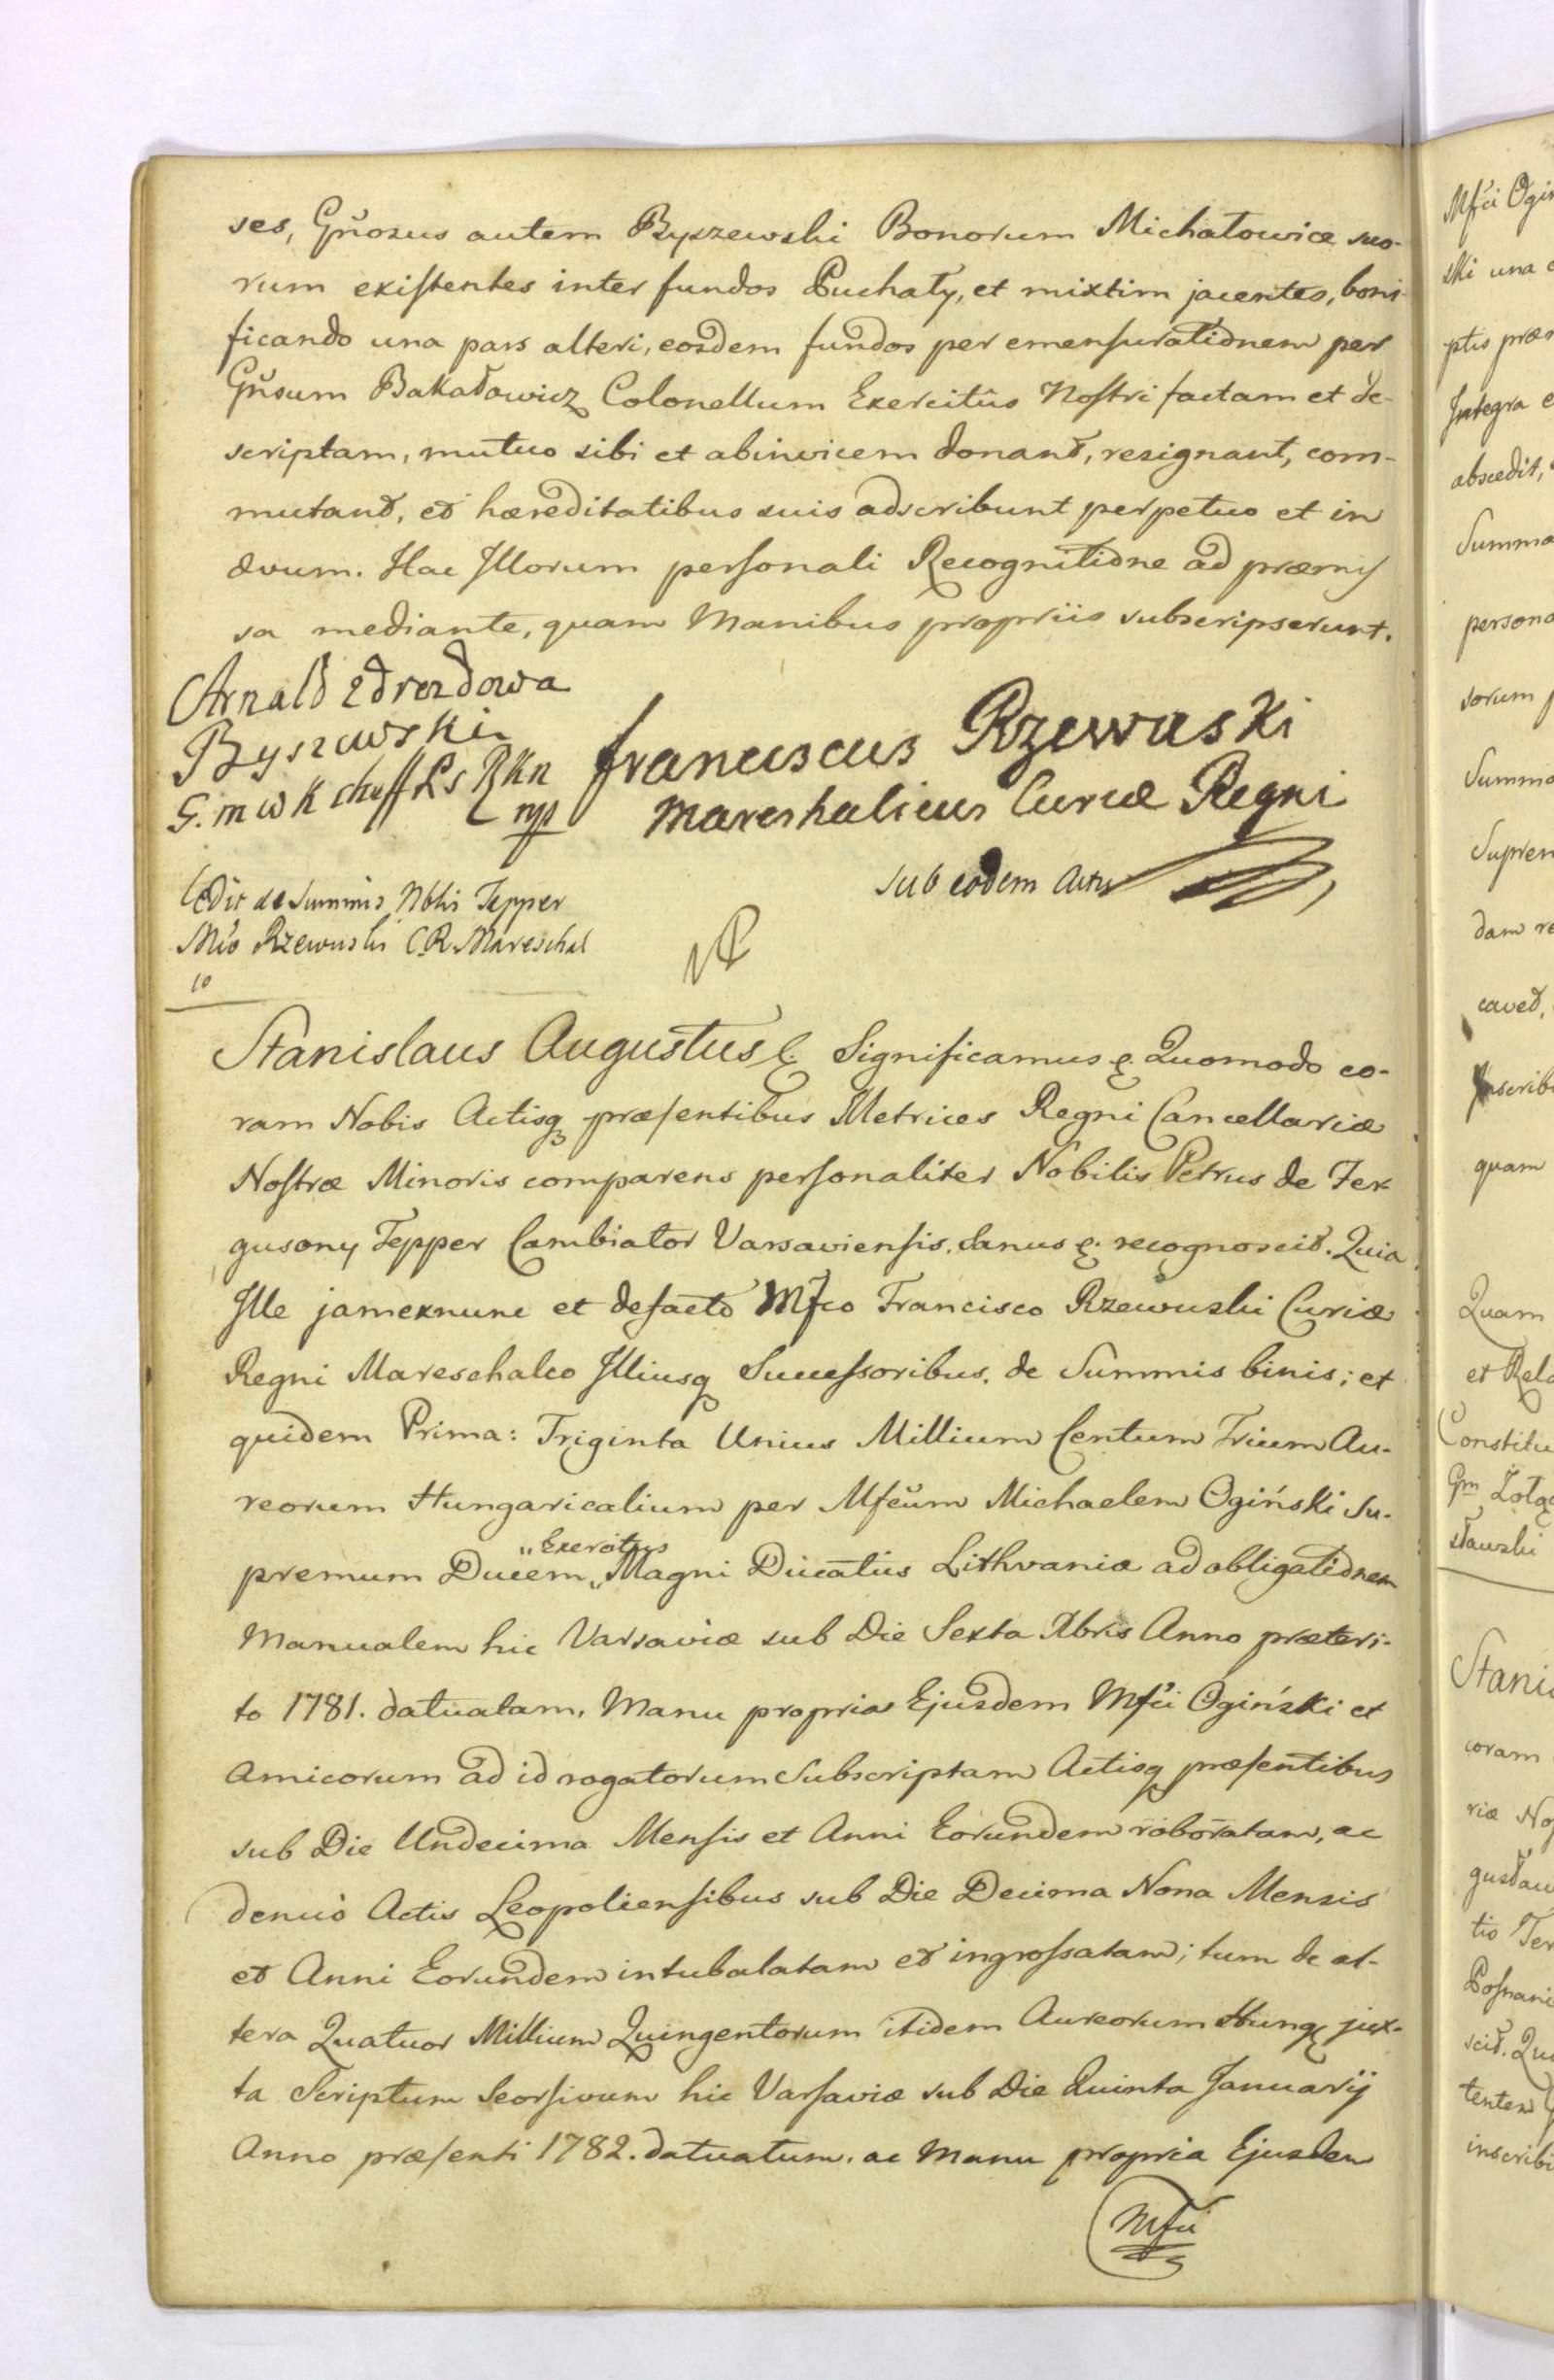 ses, Gñosus autem Byszewski Bonorum Michałowice suo-
rum existentes inter fundos Puchały, et mixtim jacentes, boni-
ficando una pars alteri, eosdem fundos per emensurationem per
Gñsum Bakałowicz Colonellum Exercitûs Nostri factam et de-
scriptam, mutuo sibi et abinvicem donant, resignant, com-
mutant, et hæreditatibus suis adscribunt perpetuo et in
ævum. Hac Illorum personali Recognitione ad præmis
sa mediante, quam Manibus propriis subscripserunt.
Arnald zdrozdowa
Byszewski
G. m w K cheff Ls RKn
mp
Franciscus Rzewuski
Mareshalicus Curiæ Regni
sub eodem Actu
Cedit de Summis Nblis Tepper
Mfo Rzewuski C.R. Mareschal
10
Stanislaus Augustus &. Significamus &. Quomodo co-
ram Nobis Actisq præsentibus Metrices Regni Cancellariæ
Nostræ Minoris comparens personaliter Nobilis Petrus de Fer
gusony Tepper Cambiator Varsaviensis. Sanus &. recognoscit. Quia
Ille jamexnunc et defacto Mfco Francisco Rzewuski Curiæ
Regni Mareschalco Illiusq Successoribus. de Summis binis; et
quidem Prima: Triginta Unius Millium Centum Trium Au-
reorum Hungaricalium per Mfcum Michaelem Ogiński Su-
premum Ducem "Exercitus Magni Ducatûs Lithvaniæ ad obligationem
Manualem hic Varsaviæ sub Die Sexta Xbris Anno præteri-
to 1781. datuatam, Manu propria Ejusdem Mfci Ogiński et
Amicorum ad id rogatorum Subscriptam Actisq præsentibus
sub Die Undecima Mensis et Anni Eorundem roboratam, ac
denuò Actis Leopoliensibus sub Die Decima Nona Mensis
et Anni Eorundem intubalatam et ingrossatam; tum de al-
tera Quatuor Millium Quingentorum itidem Aureorum Hung jux-
ta Scriptum Seorsivum hic Varsaviæ sub Die Quinta Januarij
Anno præsenti 1782. datuatum. ac Manu propria Ejusdem
Mfci
Mfci Ogin
ski una
ptis præ
Integra
abscedit,
Summa
persona
sorum
Summa
Suprem
dam re
cavet,
Inscrib
quam
Quam
et Rela
Constitu
Gm
sławski
Stani
coram
riæ No
gustaw
tis Ter
Posnani
scit. Qu
tenten
inscribi